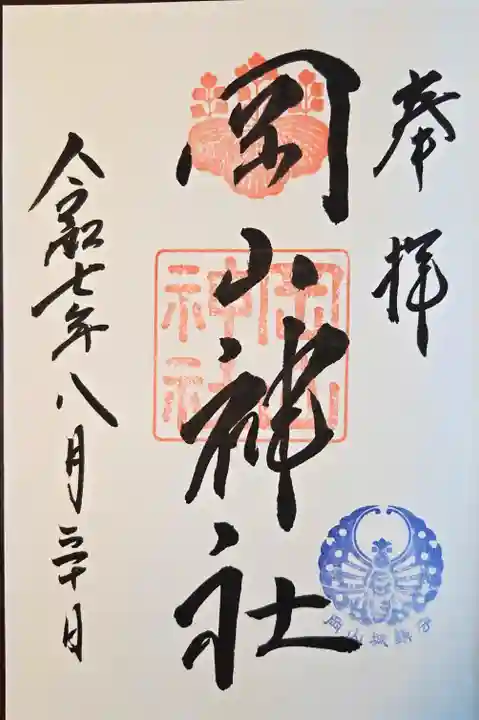 奉拝
岡山神社
岡山神社
令和七年八月二十日
岡山城鎮守